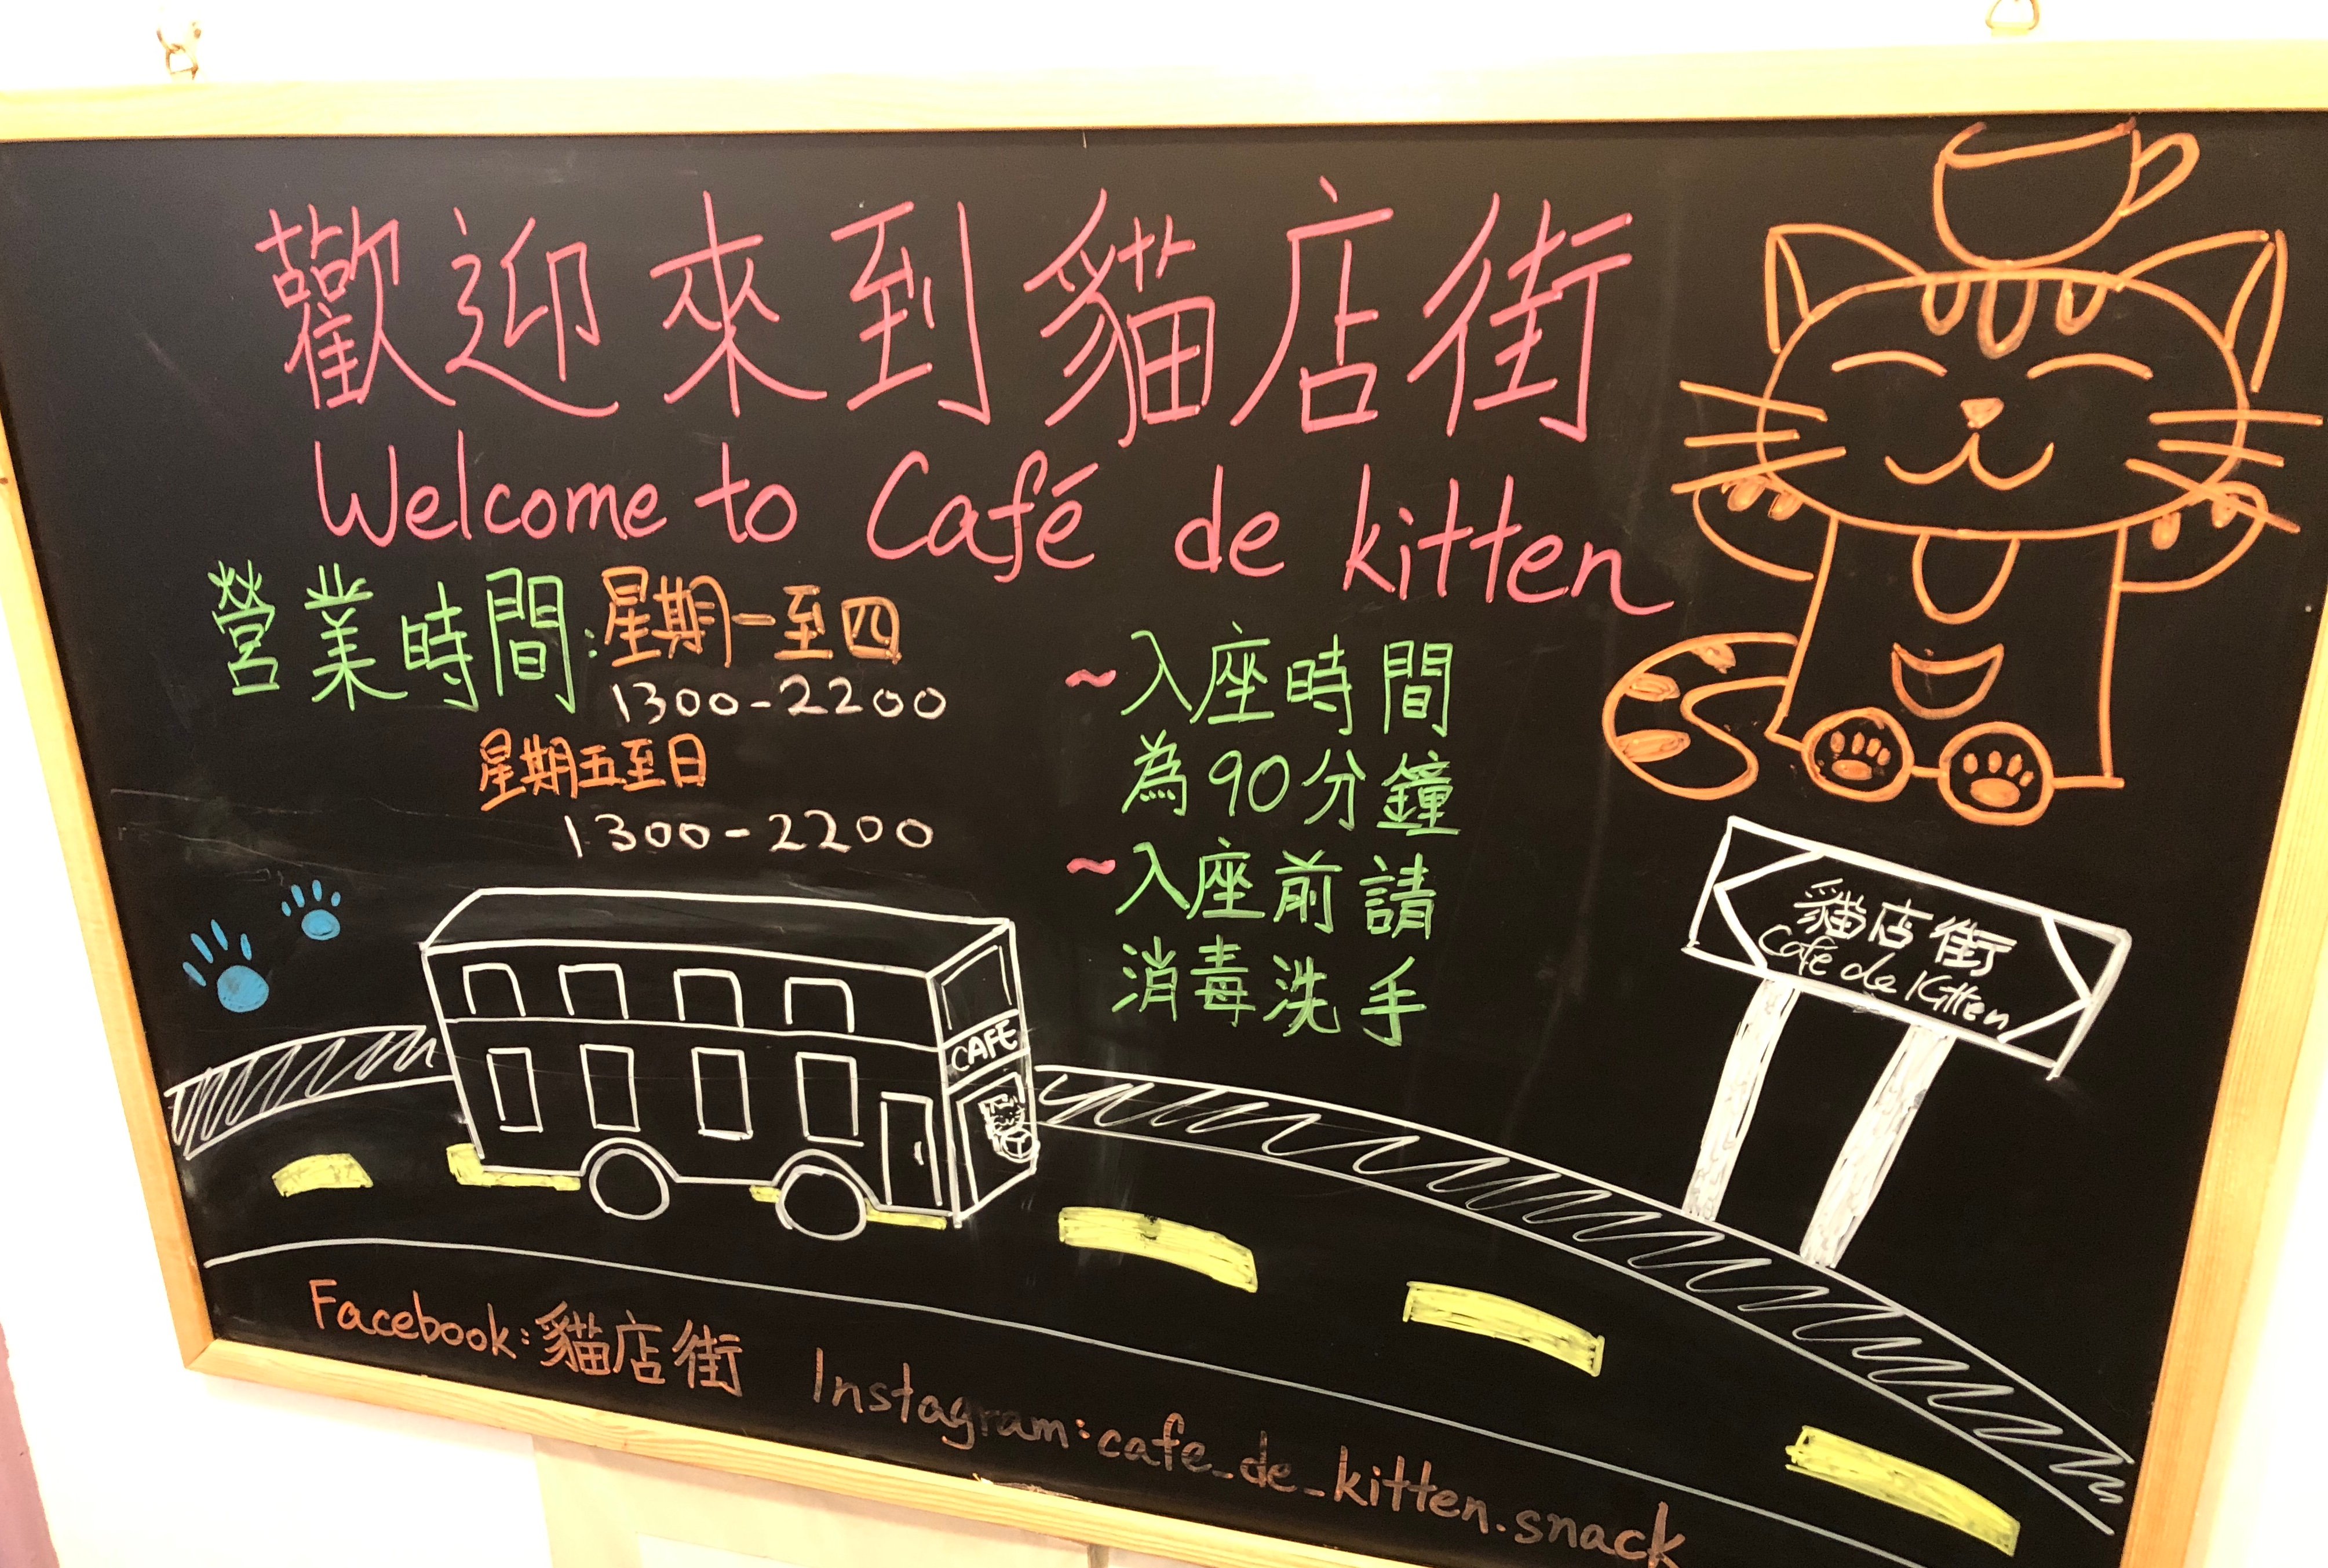 歡迎來到貓店街
Welcome to Café de kitten
營業時間:星期一至四
1300-2200
星期五至日
1300-2200
~入座時間
為90分鐘
~入座前請
消毒洗手
貓店街
Cafe de Kitten
CAFE
Facebook:貓店街 Instagram:cafe_de_kitten.snack